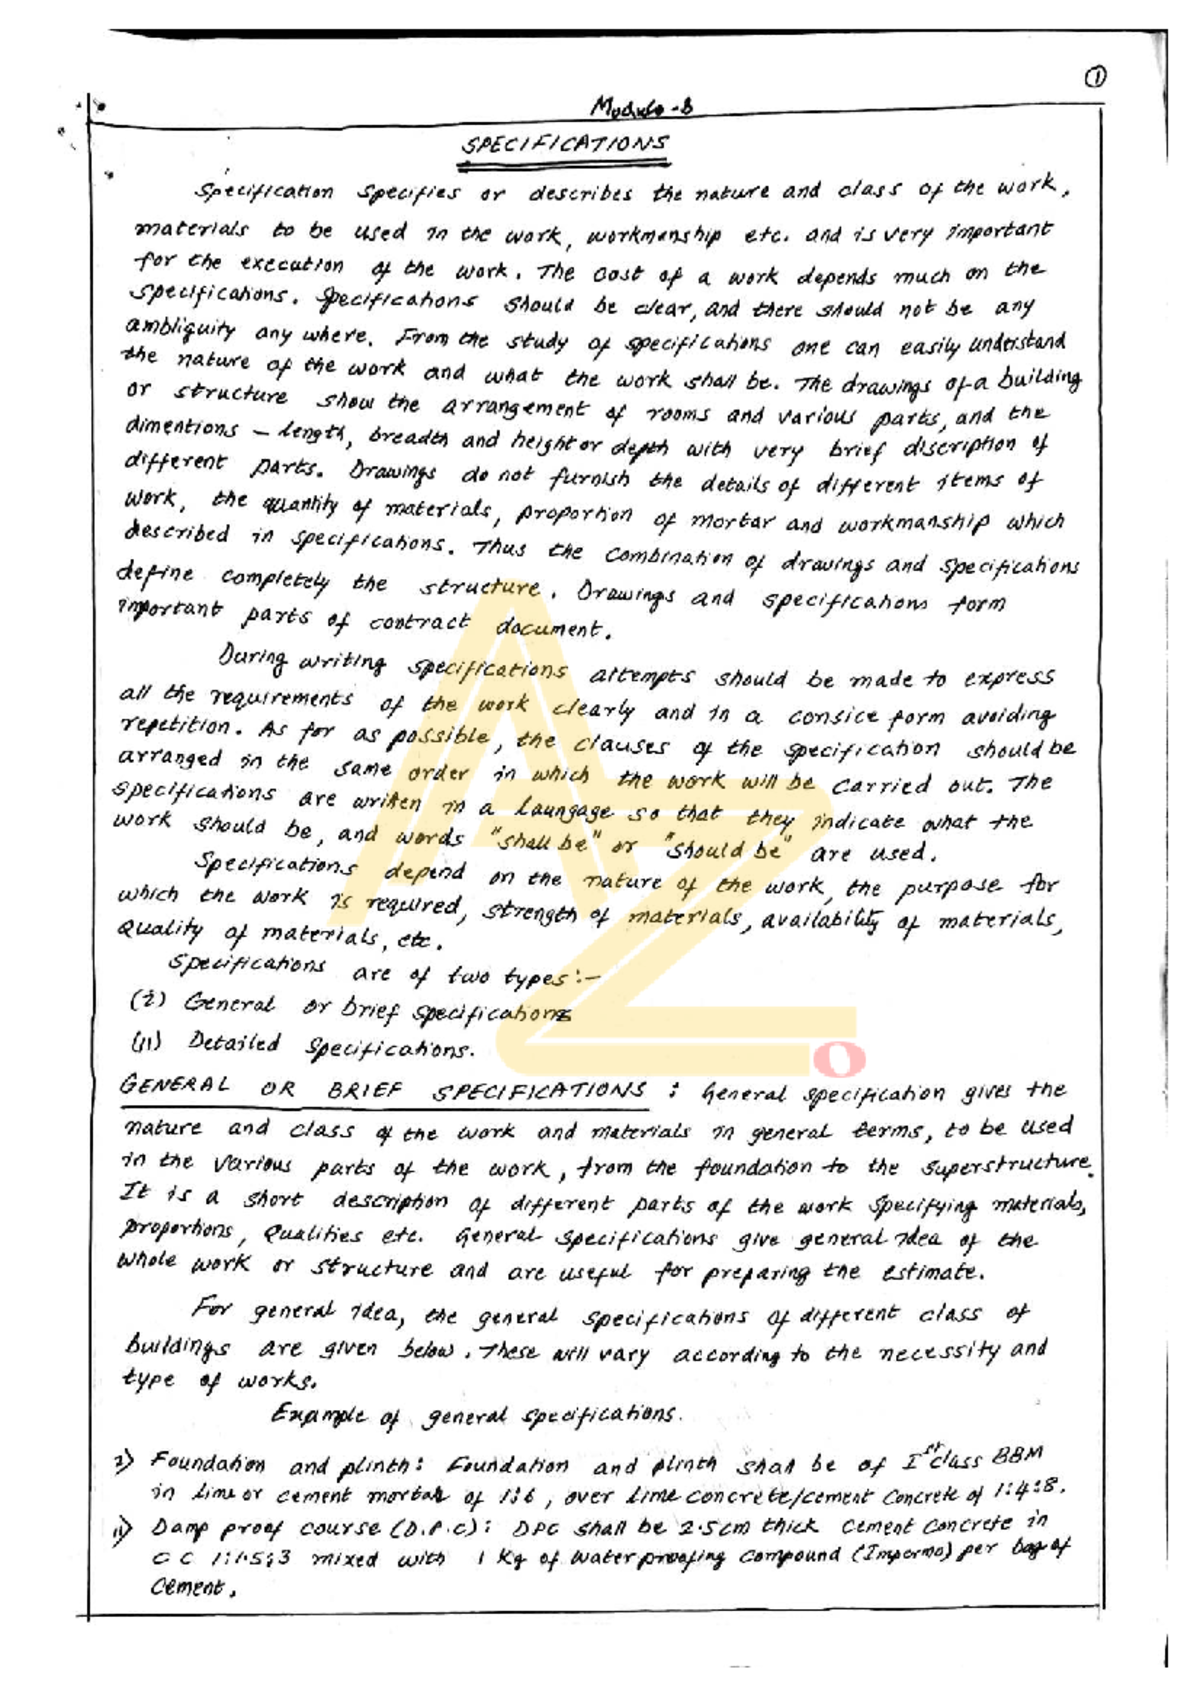 1
Module-3
SPECIFICATIONS
Specification specifies or describes the nature and class of the work,
materials to be used in the work, workmanship etc. and is very important
for the execution of the work. The cost of a work depends much on the
specifications. Specifications should be clear, and there should not be any
ambliguity any where. From the study of specifications one can easily understand
the nature of the work and what the work shall be. The drawings of a building
or structure show the arrangement of rooms and various parts, and the
dimentions – length, breadth and height or depth with very brief discription of
different parts. Drawings do not furnish the details of different items of
work, the quantity of materials, proportion of mortar and workmanship which
described in specifications. Thus the combination of drawings and specifications
define completely the structure. Drawings and specifications form
important parts of contract document.
During writing specifications attempts should be made to express
all the requirements of the work clearly and in a consice form avoiding
repetition. As for as possible, the clauses of the specification should be
arranged in the same order in which the work will be carried out. The
specifications are written in a laungage so that they indicate what the
work should be, and words "shall be" or "should be" are used.
Specifications depend on the nature of the work, the purpose for
which the work is required, strength of materials, availability of materials,
quality of materials, etc.
Specifications are of two types:–
(i) General or brief specifications
(ii) Detailed specifications.
GENERAL OR BRIEF SPECIFICATIONS : General specification gives the
nature and class of the work and materials in general terms, to be used
in the various parts of the work, from the foundation to the superstructure.
It is a short description of different parts of the work specifying materials,
proportions, qualities etc. General specifications give general idea of the
whole work or structure and are useful for preparing the estimate.
For general idea, the general specifications of different class of
buildings are given below. These will vary according to the necessity and
type of works.
Example of general specifications.
i) Foundation and plinth: Foundation and plinth shall be of Ist class BBM
in lime or cement mortar of 1:6, over lime concrete/cement concrete of 1:4:8.
ii) Damp proof course (D.P.C): DPC shall be 2.5cm thick cement concrete in
C C 1:1.5:3 mixed with 1 Kg of water proofing compound (Impermo) per bag of
cement.
AZO